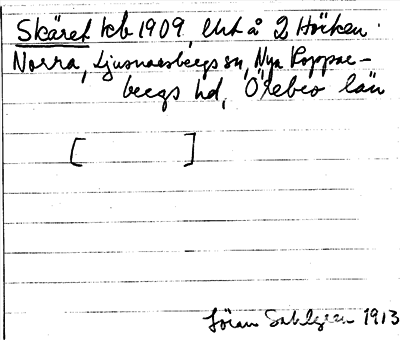 Skäret kb 1909, Utt å 2 Hörken
Norra, Ljusnarsbergs sn, Nya Koppar-
bergs hd, Örebro län
[ ]
Jöran Sahlgren 1913